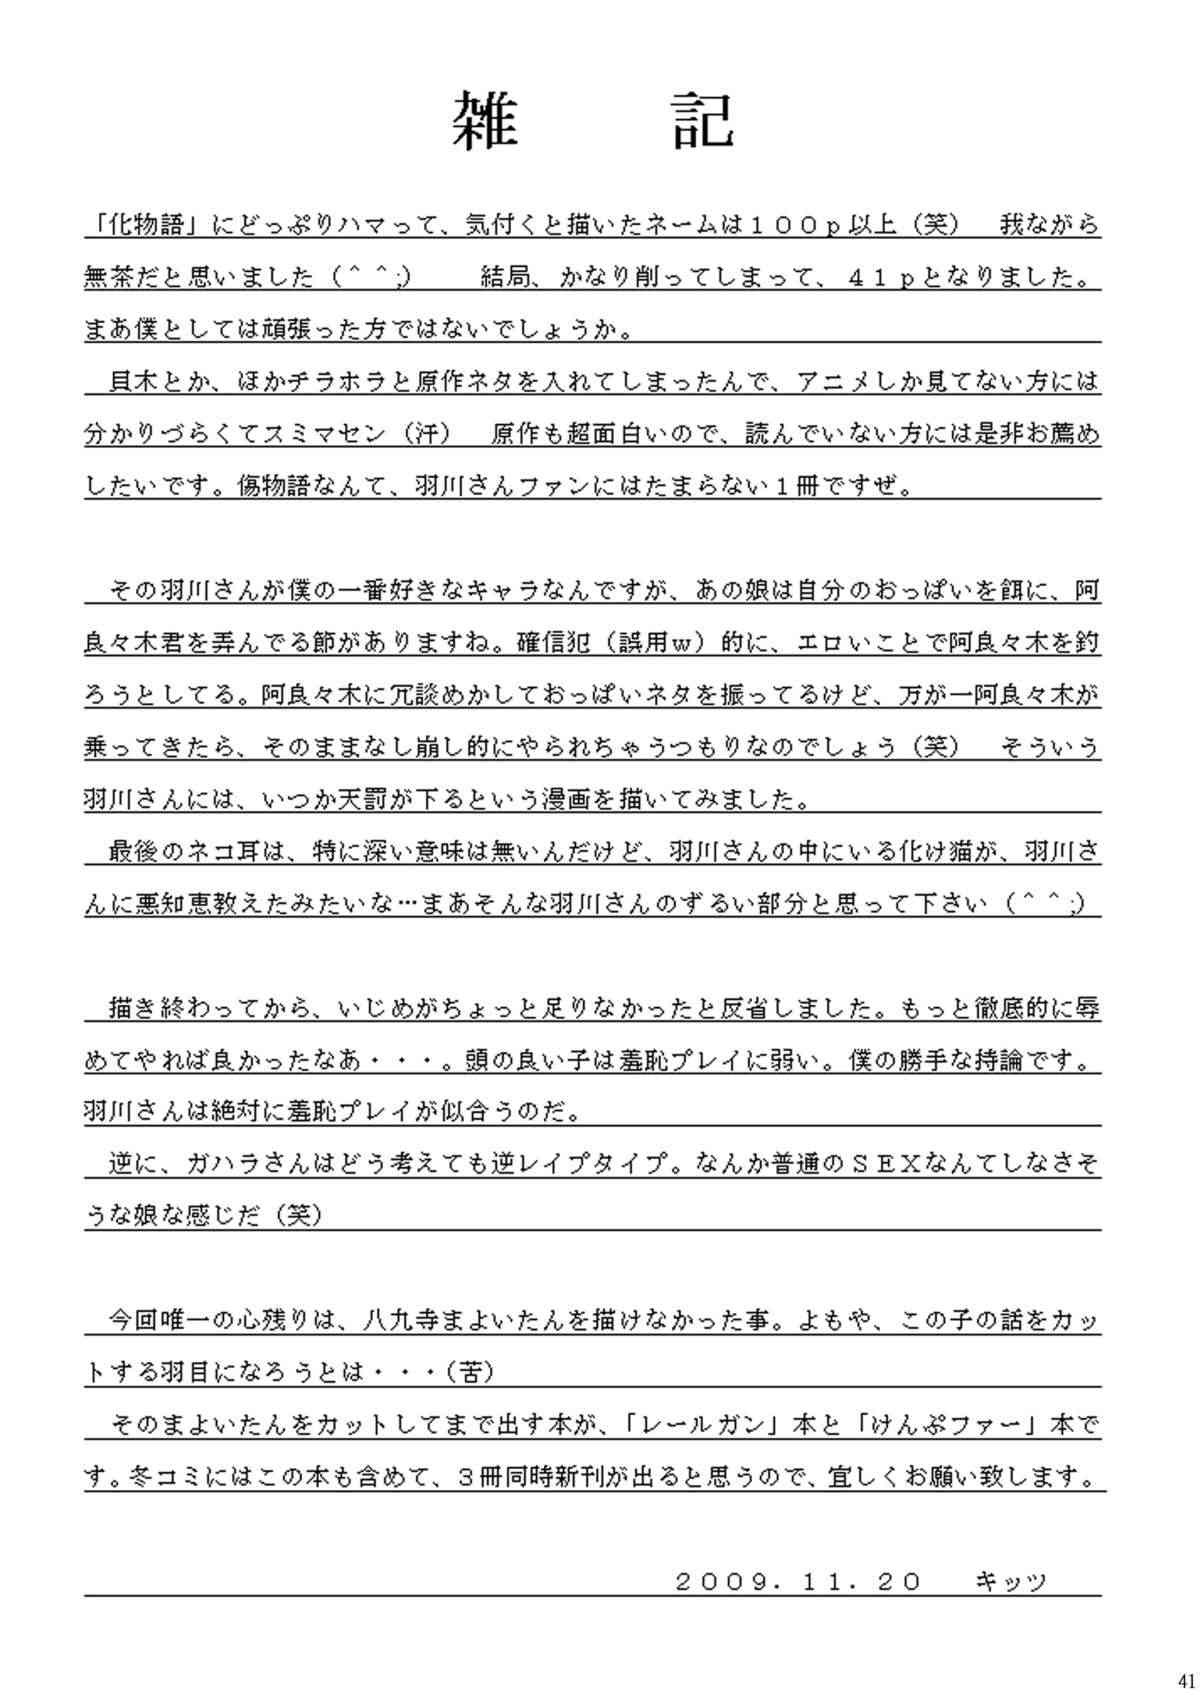 雑　記
「化物語」にどっぷりハマって、気付くと描いたネームは１００ｐ以上（笑）　我ながら
無茶だと思いました（＾＾;）　結局、かなり削ってしまって、４１ｐとなりました。
まあ僕としては頑張った方ではないでしょうか。
　貝木とか、ほかチラホラと原作ネタを入れてしまったんで、アニメしか見てない方には
分かりづらくてスミマセン（汗）　原作も超面白いので、読んでいない方には是非お薦め
したいです。傷物語なんて、羽川さんファンにはたまらない１冊ですぜ。
　その羽川さんが僕の一番好きなキャラなんですが、あの娘は自分のおっぱいを餌に、阿
良々木君を弄んでる節がありますね。確信犯（誤用ｗ）的に、エロいことで阿良々木を釣
ろうとしてる。阿良々木に冗談めかしておっぱいネタを振ってるけど、万が一阿良々木が
乗ってきたら、そのままなし崩し的にやられちゃうつもりなのでしょう（笑）　そういう
羽川さんには、いつか天罰が下るという漫画を描いてみました。
　最後のネコ耳は、特に深い意味は無いんだけど、羽川さんの中にいる化け猫が、羽川さ
んに悪知恵教えたみたいな…まあそんな羽川さんのずるい部分と思って下さい（＾＾;）
　描き終わってから、いじめがちょっと足りなかったと反省しました。もっと徹底的に辱
めてやれば良かったなあ・・・。頭の良い子は羞恥プレイに弱い。僕の勝手な持論です。
羽川さんは絶対に羞恥プレイが似合うのだ。
　逆に、ガハラさんはどう考えても逆レイプタイプ。なんか普通のＳＥＸなんてしなさそ
うな娘な感じだ（笑）
　今回唯一の心残りは、八九寺まよいたんを描けなかった事。よもや、この子の話をカッ
トする羽目になろうとは・・・（苦）
　そのまよいたんをカットしてまで出す本が、「レールガン」本と「けんぷファー」本で
す。冬コミにはこの本も含めて、３冊同時新刊が出ると思うので、宜しくお願い致します。
２００９．１１．２０　キッツ
41